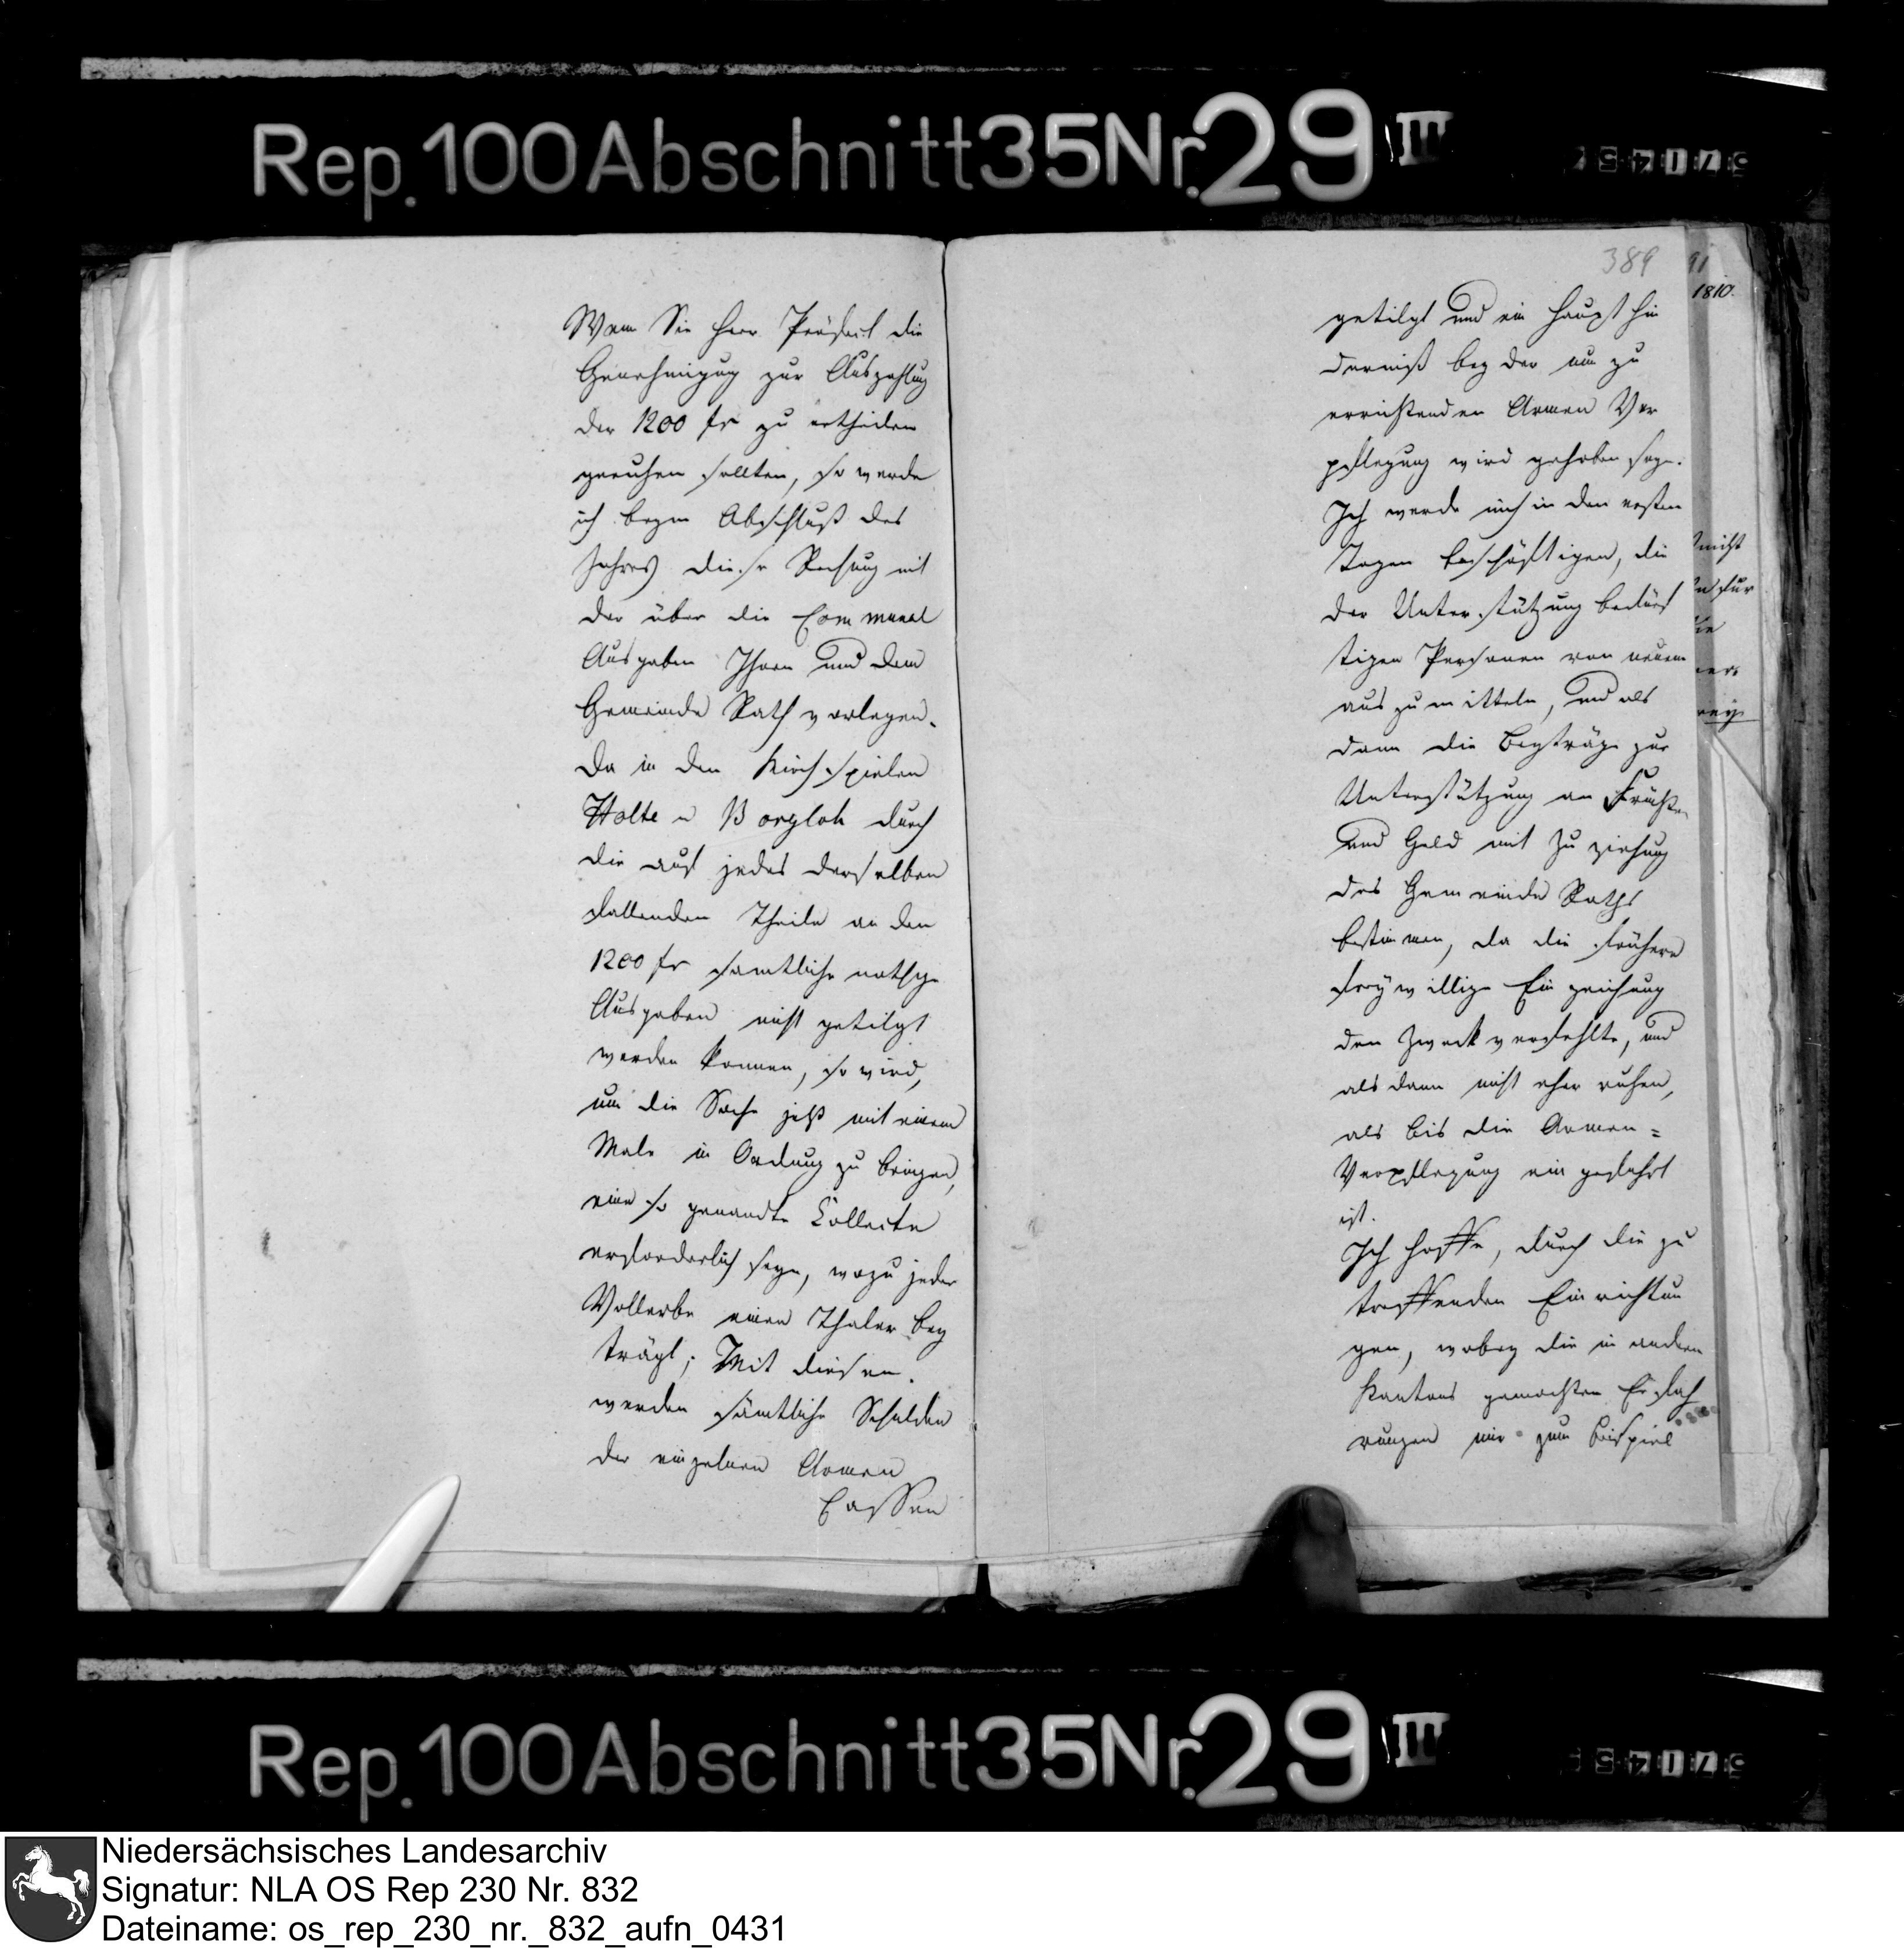 Rep. 100 Abschnitt 35 Nr. 29 III
Wenn Sie Herr Präfect die
Genehmigung zur Auszahlung
der 1200 fr zu ertheilen
geruhen sollten, so werde
ich beym Abschluß des
Jahres diese Rechnung mit
der über die Communal
Ausgaben Ihnen und dem
Gemeinde Rath vorlegen.
Da in den Kirchspielen
Holte u Borgloh durch
die auf jedes derselben
fallenden Theile an den
1200 fr samtliche nothge
Ausgaben nicht getilgt
werden konnen, so wird,
um die Sache jetzt mit einem
Male in Ordnung zu bringen,
eine so genandte Collecte
erforderlich seyn, wozu jeder
Vollerbe einen Thaler bey
trägt; Mit diesen
werden sämtliche Schulden
der einzelnen Armen
Cassen
389
getilgt und ein Haupt Hin
derniß bey der nun zu
errichtenden Armen Ver
pflegung wird gehoben seyn.
Ich werde mich in den ersten
Tagen beschäftigen, die
der Unterstützung bedürf
tigen Personen von neuem
aus zu mitteln, und als
dann die Beyträge zur
Unterstützung an Früchten
und Geld mit Zu ziehung
des Gemeinde Raths
bestimmen, da die frühere
freÿwillige Ein zeichnung
den Zweck verfehlte, und
als dann nicht eher ruhen,
als bis die Armen=
Verpflegung ein gefuhrt
ist.
Ich hoffe, durch die zu
treffenden Einrichtun
gen, wobey die in andern
Kantons gemachten Erfah
rungen mir zum Beispiel
91
1810.
nicht
Rep. 100 Abschnitt 35 Nr. 29 III
Niedersächsisches Landesarchiv
Signatur: NLA OS Rep 230 Nr. 832
Dateiname: os_rep_230_nr._832_aufn_0431